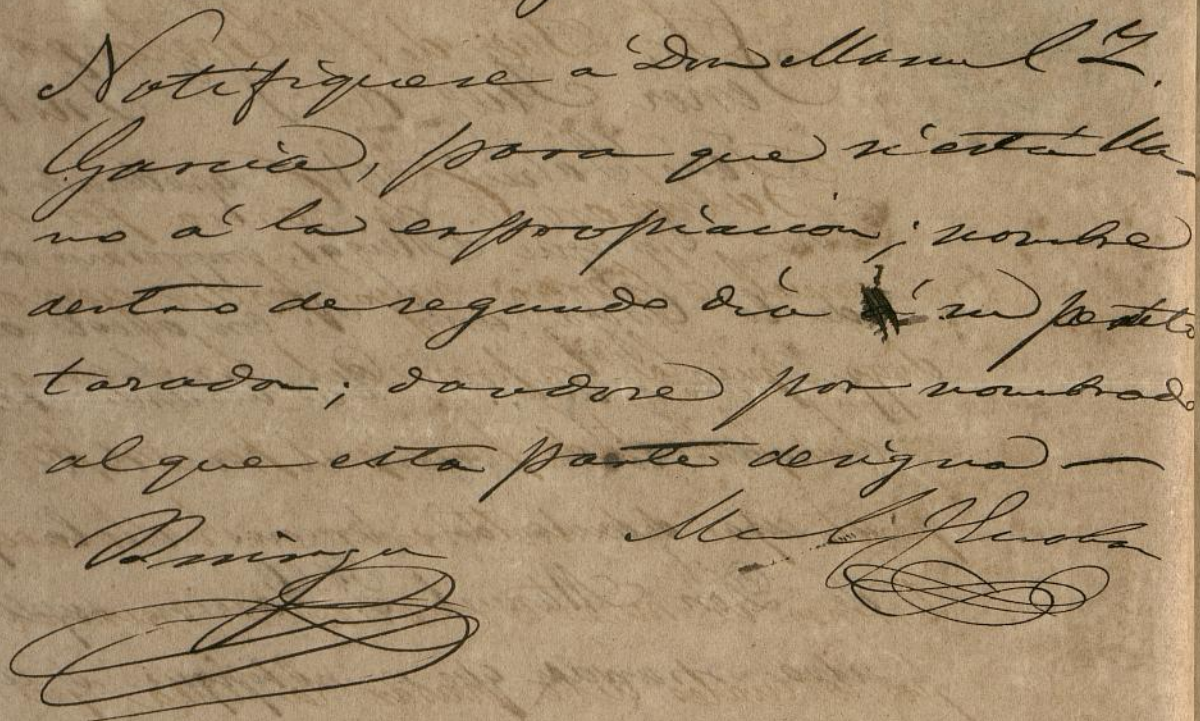 Notifiquese á Don Manuel Z.
Garcia, para que si está lla-
no á la expropiacion; nombre
dentro de segundo dia á su perito
tasador; dandose por nombrado
al que esta parte designa —